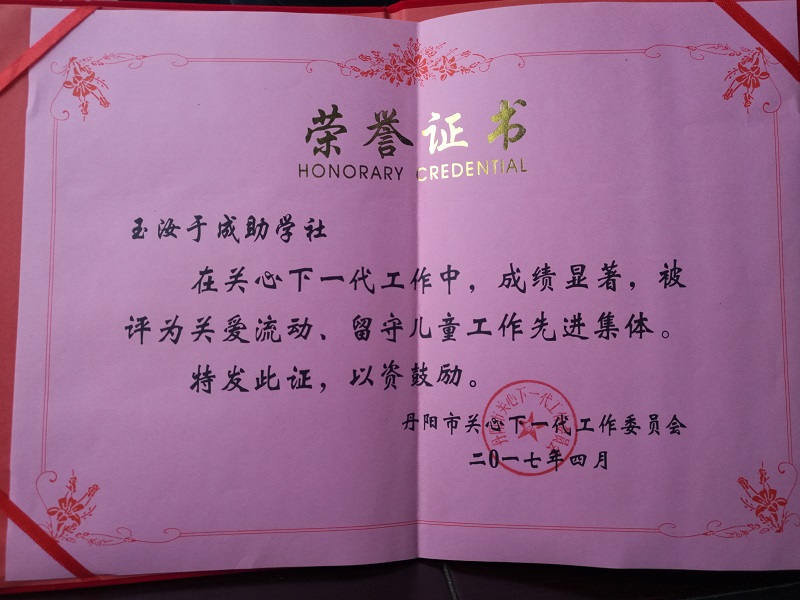 荣誉证书
HONORARY CREDENTIAL
玉汝于成助学社
在关心下一代工作中，成绩显著，被
评为关爱流动、留守儿童工作先进集体。
特发此证，以资鼓励。
丹阳市关心下一代工作委员会
二〇一七年四月
丹阳市关心下一代工作委员会